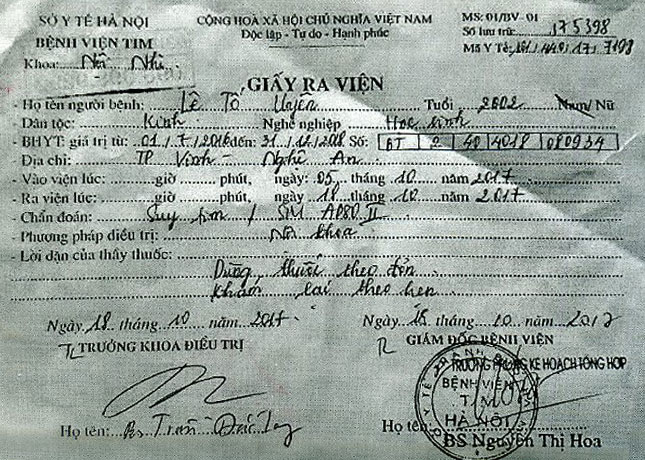 SỞ Y TẾ HÀ NỘI
BỆNH VIỆN TIM
Khoa: Nội Nhi
CỘNG HOÀ XÃ HỘI CHỦ NGHĨA VIỆT NAM
Độc lập - Tự do - Hạnh phúc
MS: 01/BV - 01
Số lưu trữ: 175398
Mã Y Tế:
GIẤY RA VIỆN
- Họ tên người bệnh: Lê Tô Uyên Tuổi 2002 Nam/ Nữ
- Dân tộc: Kinh Nghề nghiệp Học sinh
- BHYT: giá trị từ: 01/7/2016 đến: 31/12/2018 Số: BT 2 40 4018 080934
- Địa chỉ: TP Vinh - Nghệ An
- Vào viện lúc: giờ phút, ngày: 05 tháng 10 năm 2017
- Ra viện lúc: giờ phút, ngày 18 tháng 10 năm 2017
- Chẩn đoán: Suy tim /
- Phương pháp điều trị: Nội khoa
- Lời dặn của thầy thuốc:
Dùng thuốc theo đơn
Khám lại theo hẹn
Ngày 18 tháng 10 năm 2017
TL TRƯỞNG KHOA ĐIỀU TRỊ
Họ tên: Bs Trần Đắc
Ngày 18 tháng 10 năm 2017
GIÁM ĐỐC BỆNH VIỆN
TRƯỞNG PHÒNG KẾ HOẠCH TỔNG HỢP
BỆNH VIỆN
TIM
HÀ NỘI
Họ tên: BS Nguyễn Thị Hoa